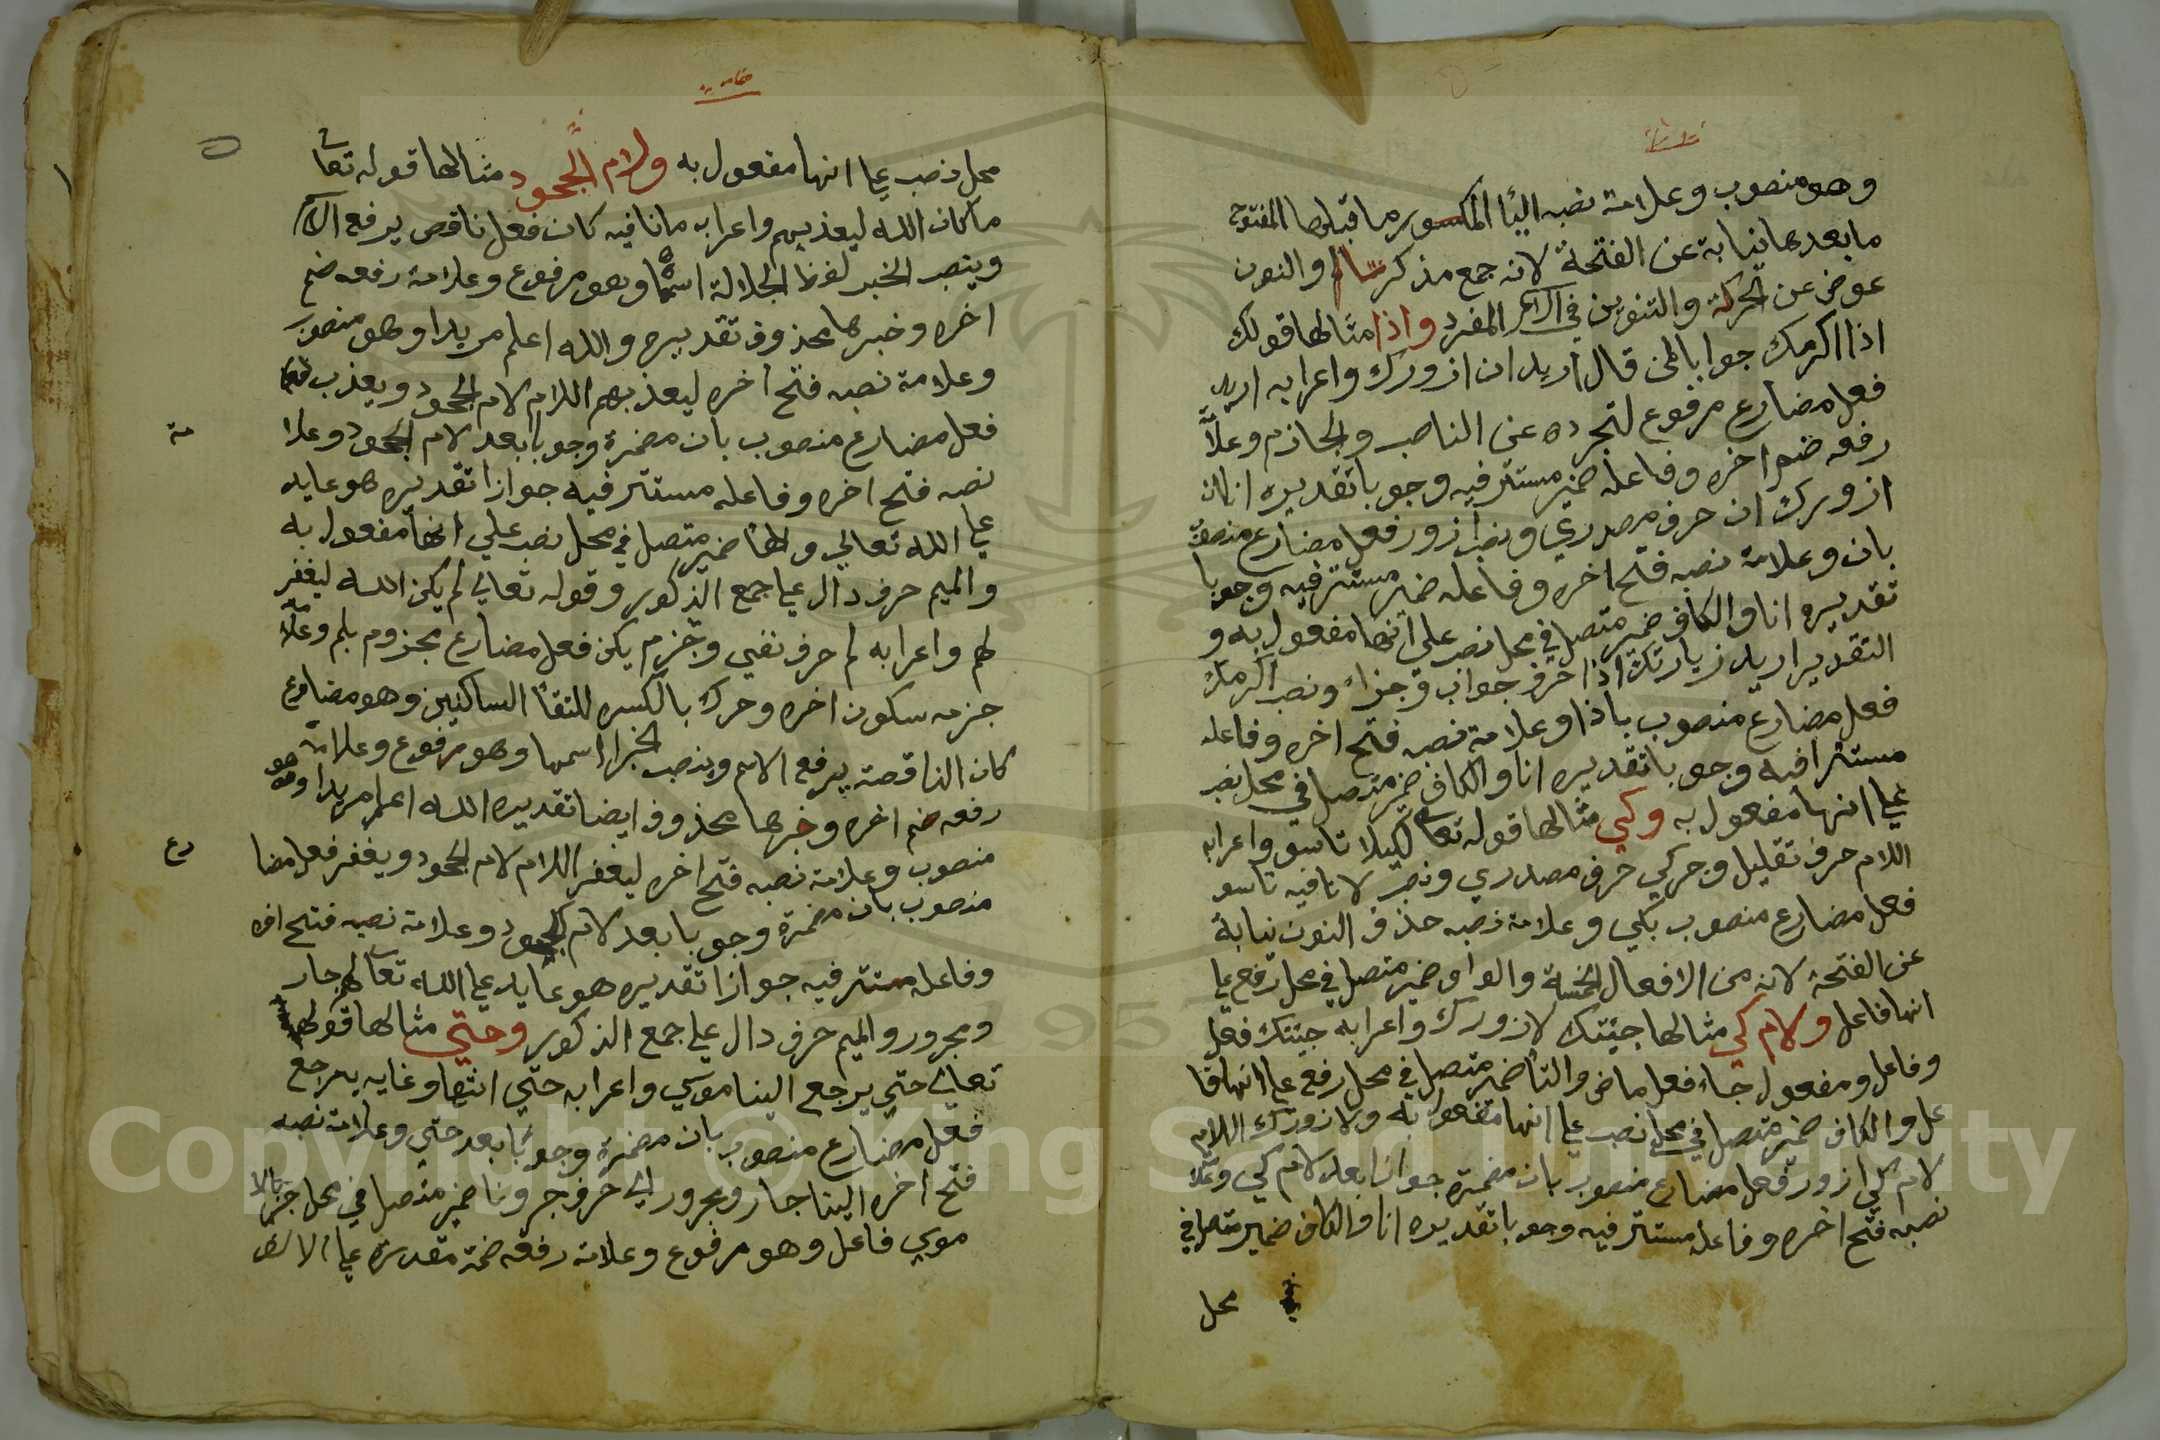 وهو منصوب وعلامة نصبه اليا المكسور ما قبلها المفتوح
ما بعدها نيابة عن الفتحة لانه جمع مذكر سالم والنون
عوض عن الحركة والتنوين في الاسم المفرد واذا مثالها قولك
اذا اكرمك جوابا لمن قال اريد ان ازورك واعرابه اريد
فعل مضارع مرفوع لتجرده عن الناصب والجازم وعلامة
رفعه ضم اخره وفاعله ضمير مستتر فيه وجوبا تقديره انا ان
ازورك ان حرف مصدري ونصب ازور فعل مضارع منصوب
بان وعلامة نصبه فتح اخره وفاعله ضمير مستتر فيه وجوبا
تقديره انا والكاف ضمير متصل في محل نصب على انها مفعول به و
التقدير اريد زيارتك اذا حرف جواب وجزاء ونصب اكرمك
فعل مضارع منصوب باذا وعلامة نصبه فتح اخره وفاعله
مستترا فيه وجوبا تقديره انا والكاف ضمير متصل في محل نصب
علي انها مفعول به وكي مثالها قوله تعالى لكيلا تاسو واعرابه
اللام حرف تعليل وجر كي حرف مصدري ونصب لا نافيه تاسو
فعل مضارع منصوب بكي وعلامة نصبه حذف النون نيابة
عن الفتحة لانه من الافعال الخمسة والواو ضمير متصل في محل رفع علي
انها فاعل ولام كي مثالها جيتك لازورك واعرابه جيتك فعل
وفاعل ومفعول جاء فعل ماض والتا ضمير متصل في محل رفع علي انها فا
عل والكاف ضمير متصل في محل نصب علي انها مفعول به ولازورك اللام
لام كي ازور فعل مضارع منصوب بان مضمرة جوازا بعد لام كي وعلامة
نصبه فتح اخره وفاعله مستتر فيه وجوبا تقديره انا والكاف ضمير متصل في
محل
محل نصب علي انها مفعول به ولام الجحود مثالها قوله تعا
ما كان الله ليعذبهم واعرابه ما نافيه كان فعل ناقص يرفع الاسم
وينصب الخبر لفظ الجلالة اسمها وهو مرفوع وعلامة رفعه ضم
اخره وخبرها محذوف تقديره والله اعلم مريدا وهو منصوب
وعلامة نصبه فتح اخره ليعذبهم اللام لام الجحود ويعذب
فعل مضارع منصوب بان مضمرة وجوبا بعد لام الجحود وعلا
مة
نصبه فتح اخره وفاعله مستتر فيه جوازا تقديره هو عايد
علي الله تعالي والها ضمير متصل في محل نصب علي انها مفعول به
والميم حرف دال علي جمع الذكور وقوله تعالي لم يكن الله ليغفر
لهم واعرابه لم حرف نفي وجزم يكن فعل مضارع مجزوم بلم وعلامة
جزمه سكون اخره وحرك بالكسره للتقا الساكنين وهو مضارع
كان الناقصة يرفع الاسم وينصب الخبر اسمها وهو مرفوع وعلامة
رفعه ضم اخره وخبرها محذوف ايضا تقديره الله اعلم مريدا وهو
منصوب وعلامة نصبه فتح اخره ليغفر اللام لام الجحود ويغفر فعل مضا
رع
منصوب بان مضمرة وجوبا بعد لام الجحود وعلامة نصبه فتح اخره
وفاعله مستتر فيه جوازا تقديره هو عايد علي الله تعالى لهم جار
ومجرور والميم حرف دال علي جمع الذكور وحتي مثالها قوله
تعالي حتي يرجع الينا موسي واعرابه حتي انتها وغايه يرجع
فعل مضارع منصوب بان مضمرة وجوبا بعد حتي وعلامة نصبه
فتح اخره الينا جار ومجرور الي حرف جر ونا ضمير متصل في محل جر بالا
موسي فاعل وهو مرفوع وعلامة رفعه ضمة مقدرة علي الالف